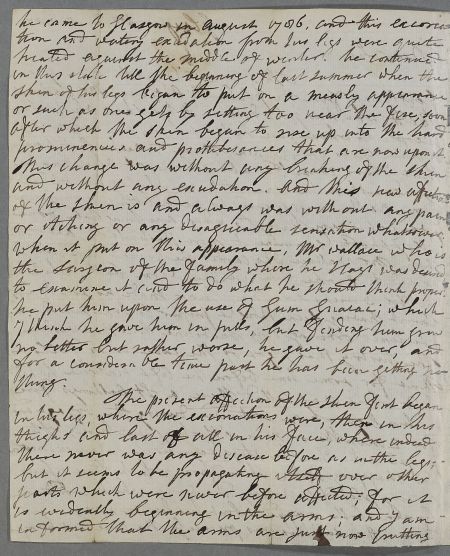 he came to Glasgow in August 1786. and this excoria
tion and watery exudation from his legs were quite
healed against the middle of winter. he continued
in this state till the beginning of last summer when the
skin of his legs began to put on a measly appearance
or such as ones gets by sitting too near the fire, soon
after which the skin began to rise up into the hard
prominences and protuberances that are now upon it
This change was without any breaking of the skin
and without any exudation. And this new affection
of the skin is and always was without any pain
or itching or any disagreeable sensation whatsoever
when it put on this appearance, Mr Wallace who is
the Surgeon of the family where he stays was desired
to examine it and to do what he should think proper
he put him upon the use of Gum Guaiac, which
I think he gave him in pills, but finding him grow
no better but rather worse, he gave it over and
for a considerable time past he has been getting no
thing.
The present affection of the skin first began
in his legs where the excoriations were then in his
thighs and last of all in his face, where indeed
there never was any disease before as in the legs,
but it seems to be propagating itself over other
parts which were never before affected, for it
is evidently beginning in the arms; and I am
informed that the arms are just now putting